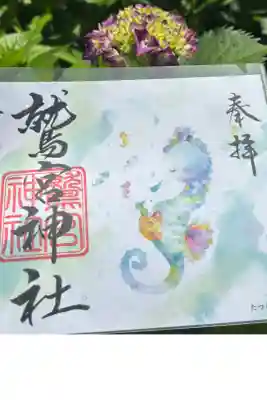 奉拝
鷲宮神社
鷲宮神社